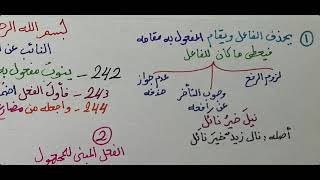 بسم الله الرح
النائب عن ا
242 - ينوب مفعول به
243 - فأول الفعل اضم
244 - واجعله من مضارع
① يحذف الفاعل ويقام المفعول به مقامه
فيعطى ما كان للفاعل
لزوم الرفع
وجوب التأخر عن رافعه
عدم جواز حذفه
نيل خيرُ نائل
أصله: نال زيدٌ خيرَ نائل
②
الفعل المبني للمجهول